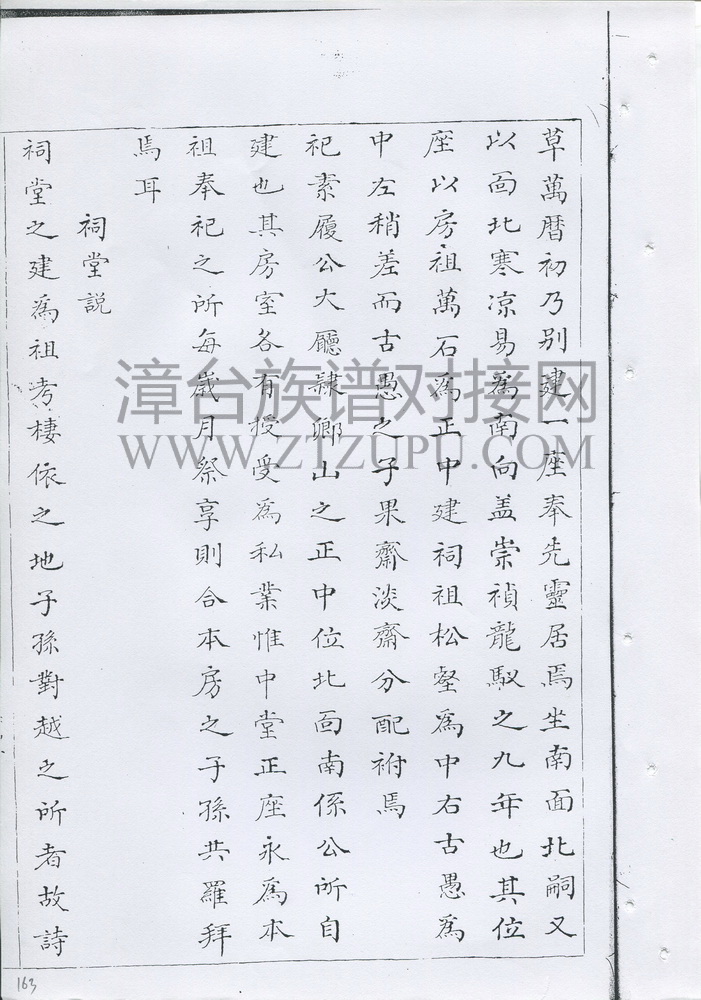 草萬曆初乃別建一座奉先靈居焉坐南面北嗣又
以面北寒凉易為南向盖崇禎龍馭之九年也其位
座以房祖萬石為正中建祠祖松壑為中右古愚為
中左稍差而古愚之子果齋淡齋分配祔焉
祀素履公大廳隸鄉山之正中位北面南係公所自
建也其房室各有授受為私業惟中堂正座永為本
祖奉祀之所每歲月祭享則合本房之子孫共羅拜
焉耳
祠堂說
祠堂之建為祖考棲依之地子孫對越之所者故詩
漳台族谱对接网
WWW.ZTZUPU.COM
163